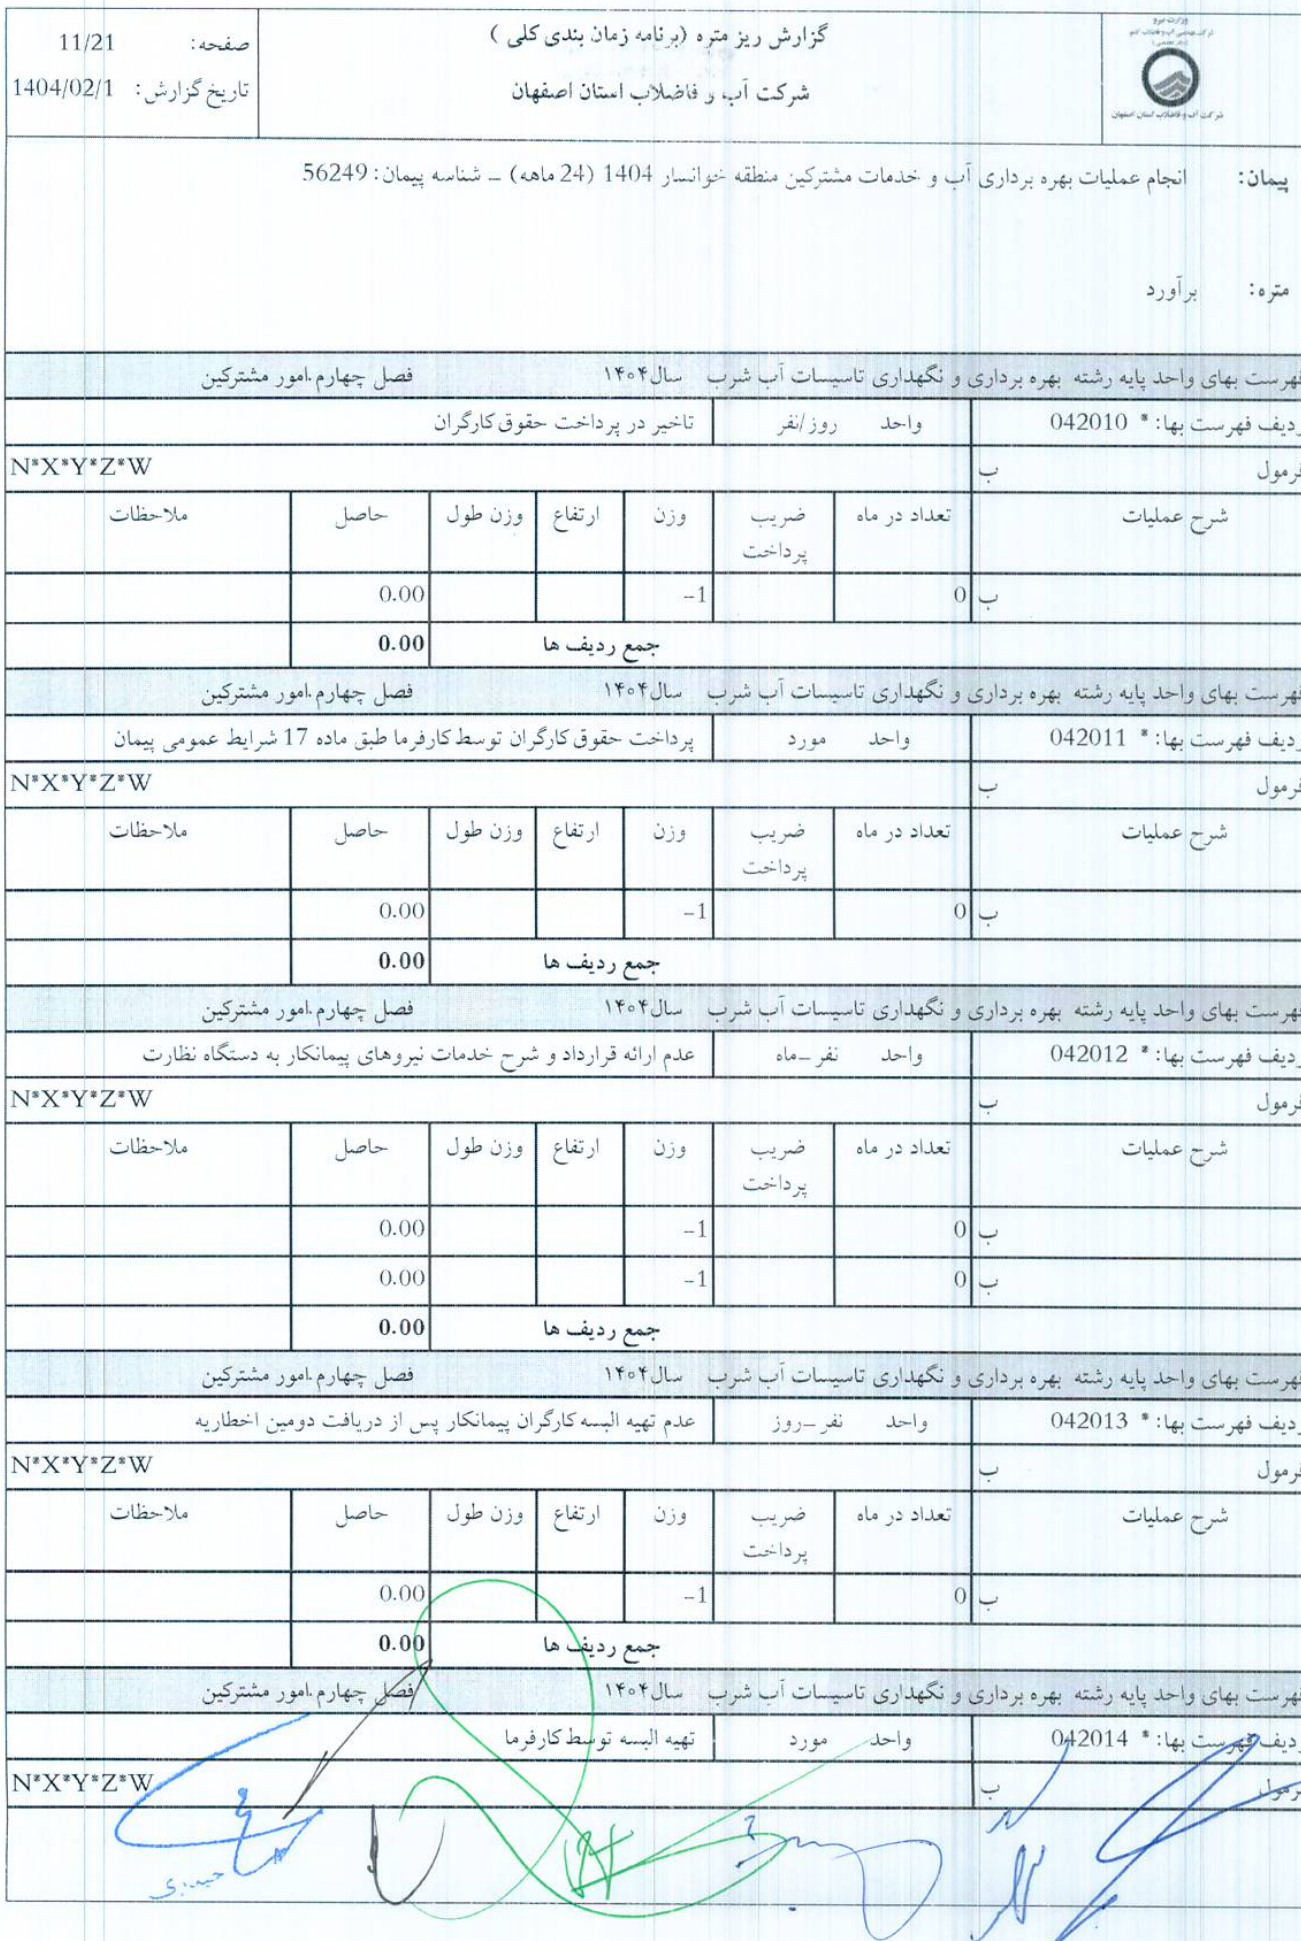 وزارت نیرو
شرکت آب و فاضلاب استان اصفهان
گزارش ریز متره (برنامه زمان بندی کلی )
شرکت آب و فاضلاب استان اصفهان
صفحه: 11/21
تاریخ گزارش: 1404/02/1
پیمان: انجام عملیات بهره برداری آب و خدمات مشترکین منطقه خوانسار 1404 (24 ماهه) – شناسه پیمان: 56249
متره: برآورد
فهرست بهای واحد پایه رشته بهره برداری و نگهداری تاسیسات آب شرب سال۱۴۰۴ فصل چهارم.امور مشترکین
ردیف فهرست بها: * 042010 واحد روز/نفر تاخیر در پرداخت حقوق کارگران
فرمول ب N*X*Y*Z*W
شرح عملیات تعداد در ماه ضریب پرداخت وزن ارتفاع وزن طول حاصل ملاحظات
ب 0 -1 0.00
جمع ردیف ها 0.00
فهرست بهای واحد پایه رشته بهره برداری و نگهداری تاسیسات آب شرب سال۱۴۰۴ فصل چهارم.امور مشترکین
ردیف فهرست بها: * 042011 واحد مورد پرداخت حقوق کارگران توسط کارفرما طبق ماده 17 شرایط عمومی پیمان
فرمول ب N*X*Y*Z*W
شرح عملیات تعداد در ماه ضریب پرداخت وزن ارتفاع وزن طول حاصل ملاحظات
ب 0 -1 0.00
جمع ردیف ها 0.00
فهرست بهای واحد پایه رشته بهره برداری و نگهداری تاسیسات آب شرب سال۱۴۰۴ فصل چهارم.امور مشترکین
ردیف فهرست بها: * 042012 واحد نفر–ماه عدم ارائه قرارداد و شرح خدمات نیروهای پیمانکار به دستگاه نظارت
فرمول ب N*X*Y*Z*W
شرح عملیات تعداد در ماه ضریب پرداخت وزن ارتفاع وزن طول حاصل ملاحظات
ب 0 -1 0.00
ب 0 -1 0.00
جمع ردیف ها 0.00
فهرست بهای واحد پایه رشته بهره برداری و نگهداری تاسیسات آب شرب سال۱۴۰۴ فصل چهارم.امور مشترکین
ردیف فهرست بها: * 042013 واحد نفر–روز عدم تهیه البسه کارگران پیمانکار پس از دریافت دومین اخطاریه
فرمول ب N*X*Y*Z*W
شرح عملیات تعداد در ماه ضریب پرداخت وزن ارتفاع وزن طول حاصل ملاحظات
ب 0 -1 0.00
جمع ردیف ها 0.00
فهرست بهای واحد پایه رشته بهره برداری و نگهداری تاسیسات آب شرب سال۱۴۰۴ فصل چهارم.امور مشترکین
ردیف فهرست بها: * 042014 واحد مورد تهیه البسه توسط کارفرما
فرمول ب N*X*Y*Z*W